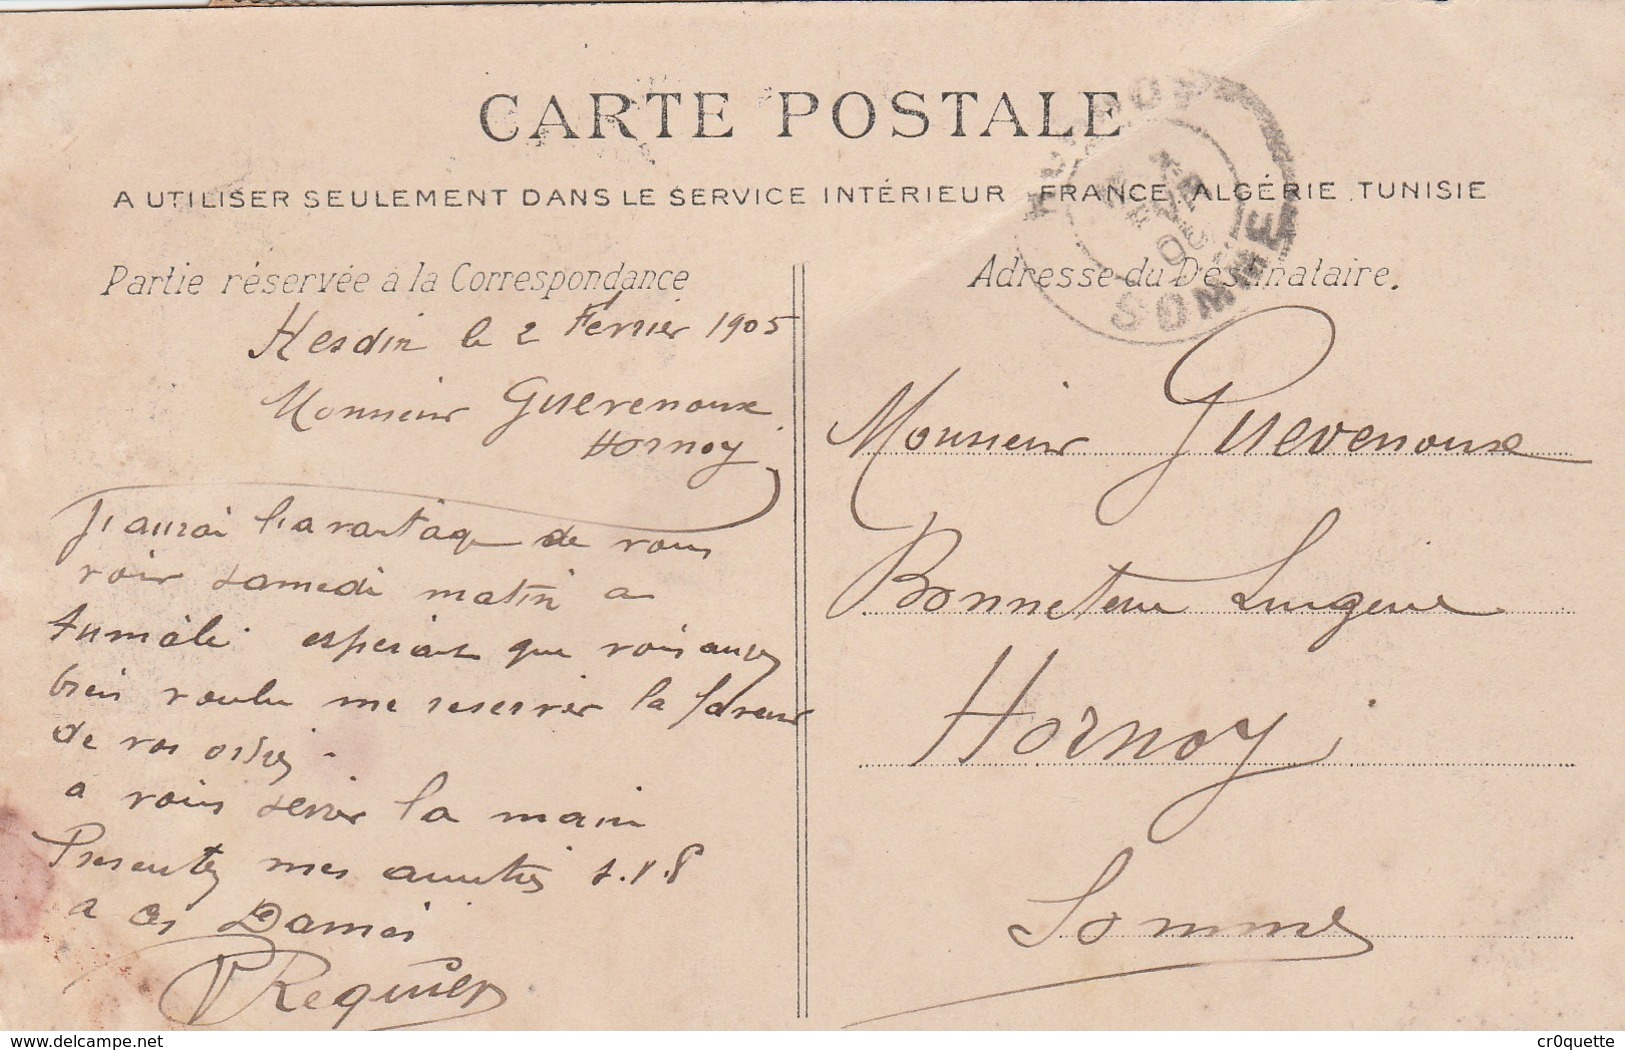 CARTE POSTALE
A UTILISER SEULEMENT DANS LE SERVICE INTÉRIEUR FRANCE ALGÉRIE TUNISIE
Partie réservée à la Correspondance
Hesdin le 2 Fevrier 1905
Monsieur Guevenoux
Hornoy
J'aurai l'avantage de vous
voir samedi matin a
Aumâle esperant que vous aurez
bien voulu me reserver la faveur
de vos ordres -
a vous serrer la main
Presentez mes amities s.v.p
a ces Dames
V Requier
Adresse du Destinataire.
Monsieur Guevenoux
Bonneterie Lingerie
Hornoy
Somme
HORNOY
SOMME
www.delcampe.net
cr0quette